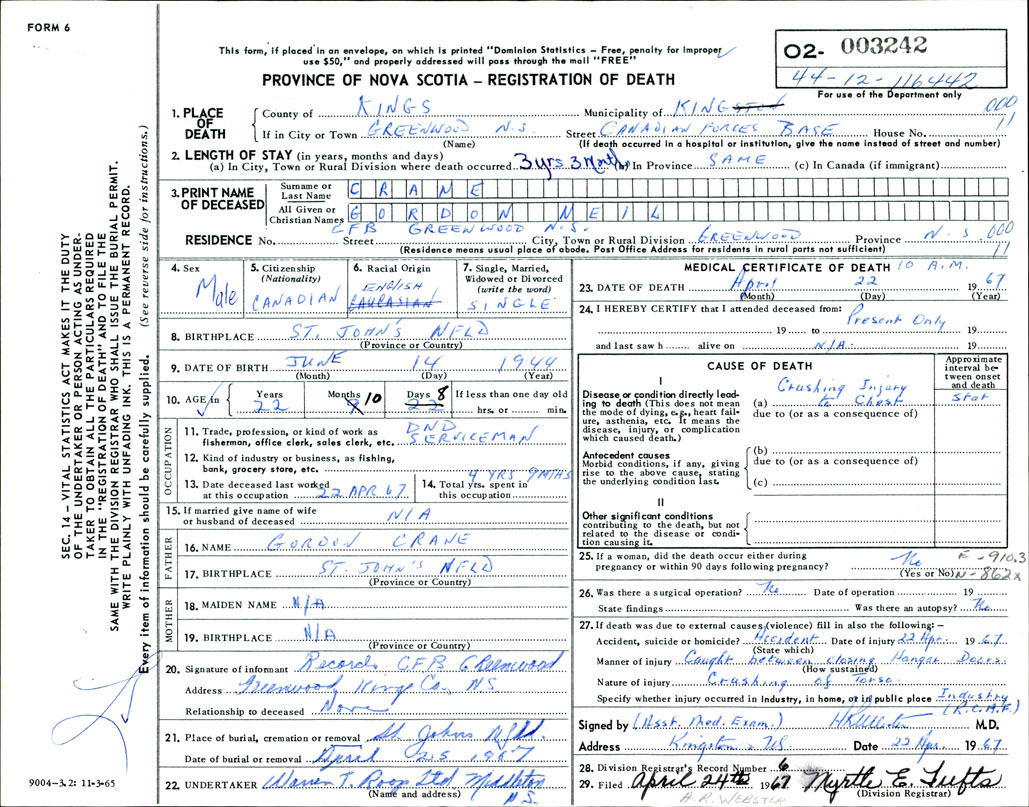 FORM 6
This form, if placed in an envelope, on which is printed "Dominion Statistics – Free, penalty for improper
use $50," and properly addressed will pass through the mail "FREE"
PROVINCE OF NOVA SCOTIA – REGISTRATION OF DEATH
02- 003242
44-12-116442
For use of the Department only
1. PLACE OF DEATH
County of KINGS Municipality of KINGSTON 000
If in City or Town GREENWOOD N.S. Street CANADIAN FORCES BASE House No. 11
(Name) (If death occurred in a hospital or institution, give the name instead of street and number)
2. LENGTH OF STAY (in years, months and days)
(a) In City, Town or Rural Division where death occurred 3 yrs 3 Months (b) In Province SAME (c) In Canada (if immigrant)
3. PRINT NAME OF DECEASED
Surname or Last Name CRANE
All Given or Christian Names GORDON NEIL
CFB GREENWOOD N.S.
RESIDENCE No. Street City, Town or Rural Division GREENWOOD Province N.S. 000
(Residence means usual place of abode. Post Office Address for residents in rural parts not sufficient) 11
4. Sex Male
5. Citizenship (Nationality) CANADIAN
6. Racial Origin ENGLISH CAUCASIAN
7. Single, Married, Widowed or Divorced (write the word) SINGLE
8. BIRTHPLACE ST. JOHN'S NFLD
(Province or Country)
9. DATE OF BIRTH JUNE 14 1944
(Month) (Day) (Year)
10. AGE in Years 22 Months 9 10 Days 22 8 If less than one day old hrs. or min.
OCCUPATION
11. Trade, profession, or kind of work as fisherman, office clerk, sales clerk, etc. DND SERVICEMAN
12. Kind of industry or business, as fishing, bank, grocery store, etc.
13. Date deceased last worked at this occupation 22 APR 67
14. Total yrs. spent in this occupation 4 YRS 9 MTHS
15. If married give name of wife or husband of deceased N/A
FATHER
16. NAME GORDON CRANE
17. BIRTHPLACE ST. JOHN'S NFLD
(Province or Country)
MOTHER
18. MAIDEN NAME N/A
19. BIRTHPLACE N/A
(Province or Country)
20. Signature of informant Records CFB Greenwood
Address Greenwood, Kings Co., NS
Relationship to deceased None
21. Place of burial, cremation or removal St Johns Nfld.
Date of burial or removal April 25 1967
22. UNDERTAKER Warren T. Roop Ltd Middleton
(Name and address) N.S.
MEDICAL CERTIFICATE OF DEATH 10 A.M.
23. DATE OF DEATH April 22 1967
(Month) (Day) (Year)
24. I HEREBY CERTIFY that I attended deceased from: Present Only
19 to 19
and last saw h alive on N/A 19
CAUSE OF DEATH
Approximate interval between onset and death
I
Disease or condition directly leading to death (This does not mean the mode of dying, e.g., heart failure, asthenia, etc. It means the disease, injury, or complication which caused death.)
(a) Crushing Injury to Chest Stat
due to (or as a consequence of)
Antecedent causes
Morbid conditions, if any, giving rise to the above cause, stating the underlying condition last.
(b)
due to (or as a consequence of)
(c)
II
Other significant conditions
contributing to the death, but not related to the disease or condition causing it.
25. If a woman, did the death occur either during pregnancy or within 90 days following pregnancy? No E-910.3
(Yes or No) N-862x
26. Was there a surgical operation? No Date of operation 19
State findings Was there an autopsy? No
27. If death was due to external causes (violence) fill in also the following: –
Accident, suicide or homicide? Accident Date of injury 22 Apr. 1967
(State which)
Manner of injury Caught between closing Hangar Doors
(How sustained)
Nature of injury Crushing of Torso
Specify whether injury occurred in industry, in home, or in public place Industry
(R.C.A.F.)
Signed by (Asst. Med. Exam.) M.D.
Address Kingston, NS Date 22 Apr. 1967
28. Division Registrar's Record Number 6
29. Filed April 24th 1967 Myrtle E. Tufts
(Division Registrar)
H.R. WEBSTER
SEC. 14 – VITAL STATISTICS ACT MAKES IT THE DUTY
OF THE UNDERTAKER OR PERSON ACTING AS UNDER-
TAKER TO OBTAIN ALL THE PARTICULARS REQUIRED
IN THE "REGISTRATION OF DEATH" AND TO FILE THE
SAME WITH THE DIVISION REGISTRAR WHO SHALL ISSUE THE BURIAL PERMIT.
WRITE PLAINLY WITH UNFADING INK. THIS IS A PERMANENT RECORD.
Every item of information should be carefully supplied. (See reverse side for instructions.)
9004-3.2: 11-3-65